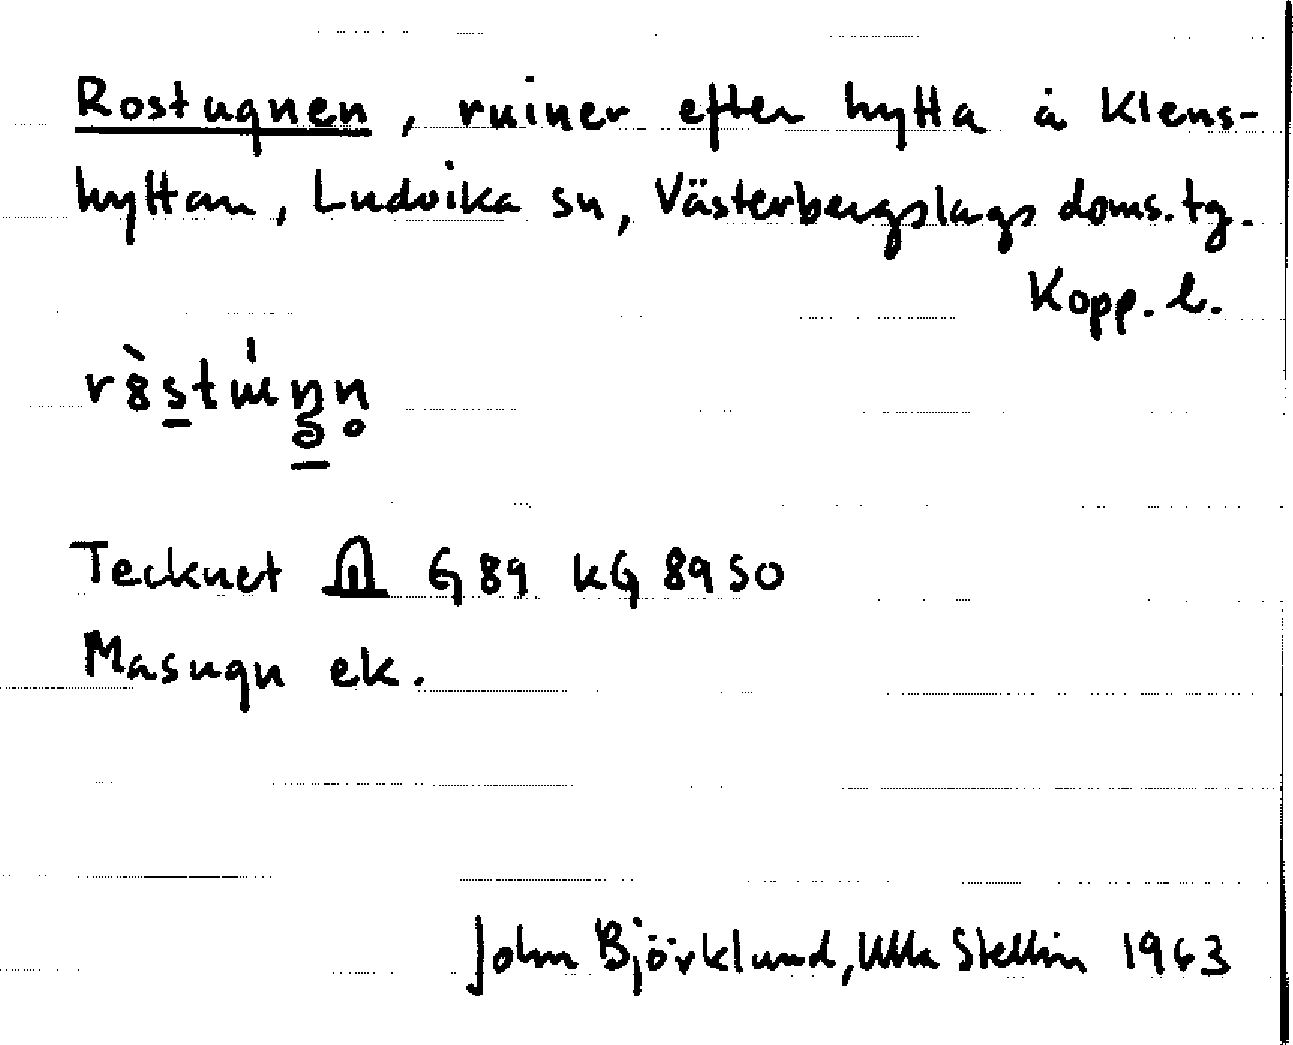 Rostugnen, ruiner efter hytta å Klens-
hyttan, Ludvika sn, Västerbergslags doms.tg.
Kopp. l.
Tecknet G89 kG 8950
Masugn ek.
John Björklund, Ulla Stellin 1963